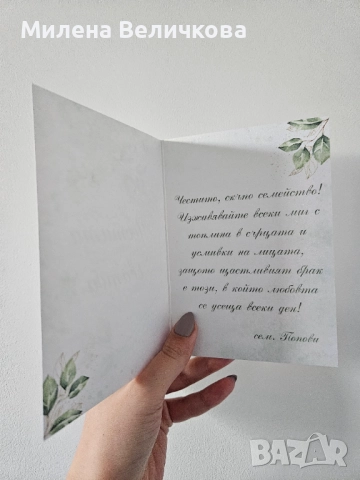 Милена Величкова
Честито, скъпо семейство!
Изживявайте всеки миг с
топлина в сърцата и
усмивки на лицата,
защото щастливият брак
е този, в който любовта
се усеща всеки ден!
сем. Попови
BAZAR